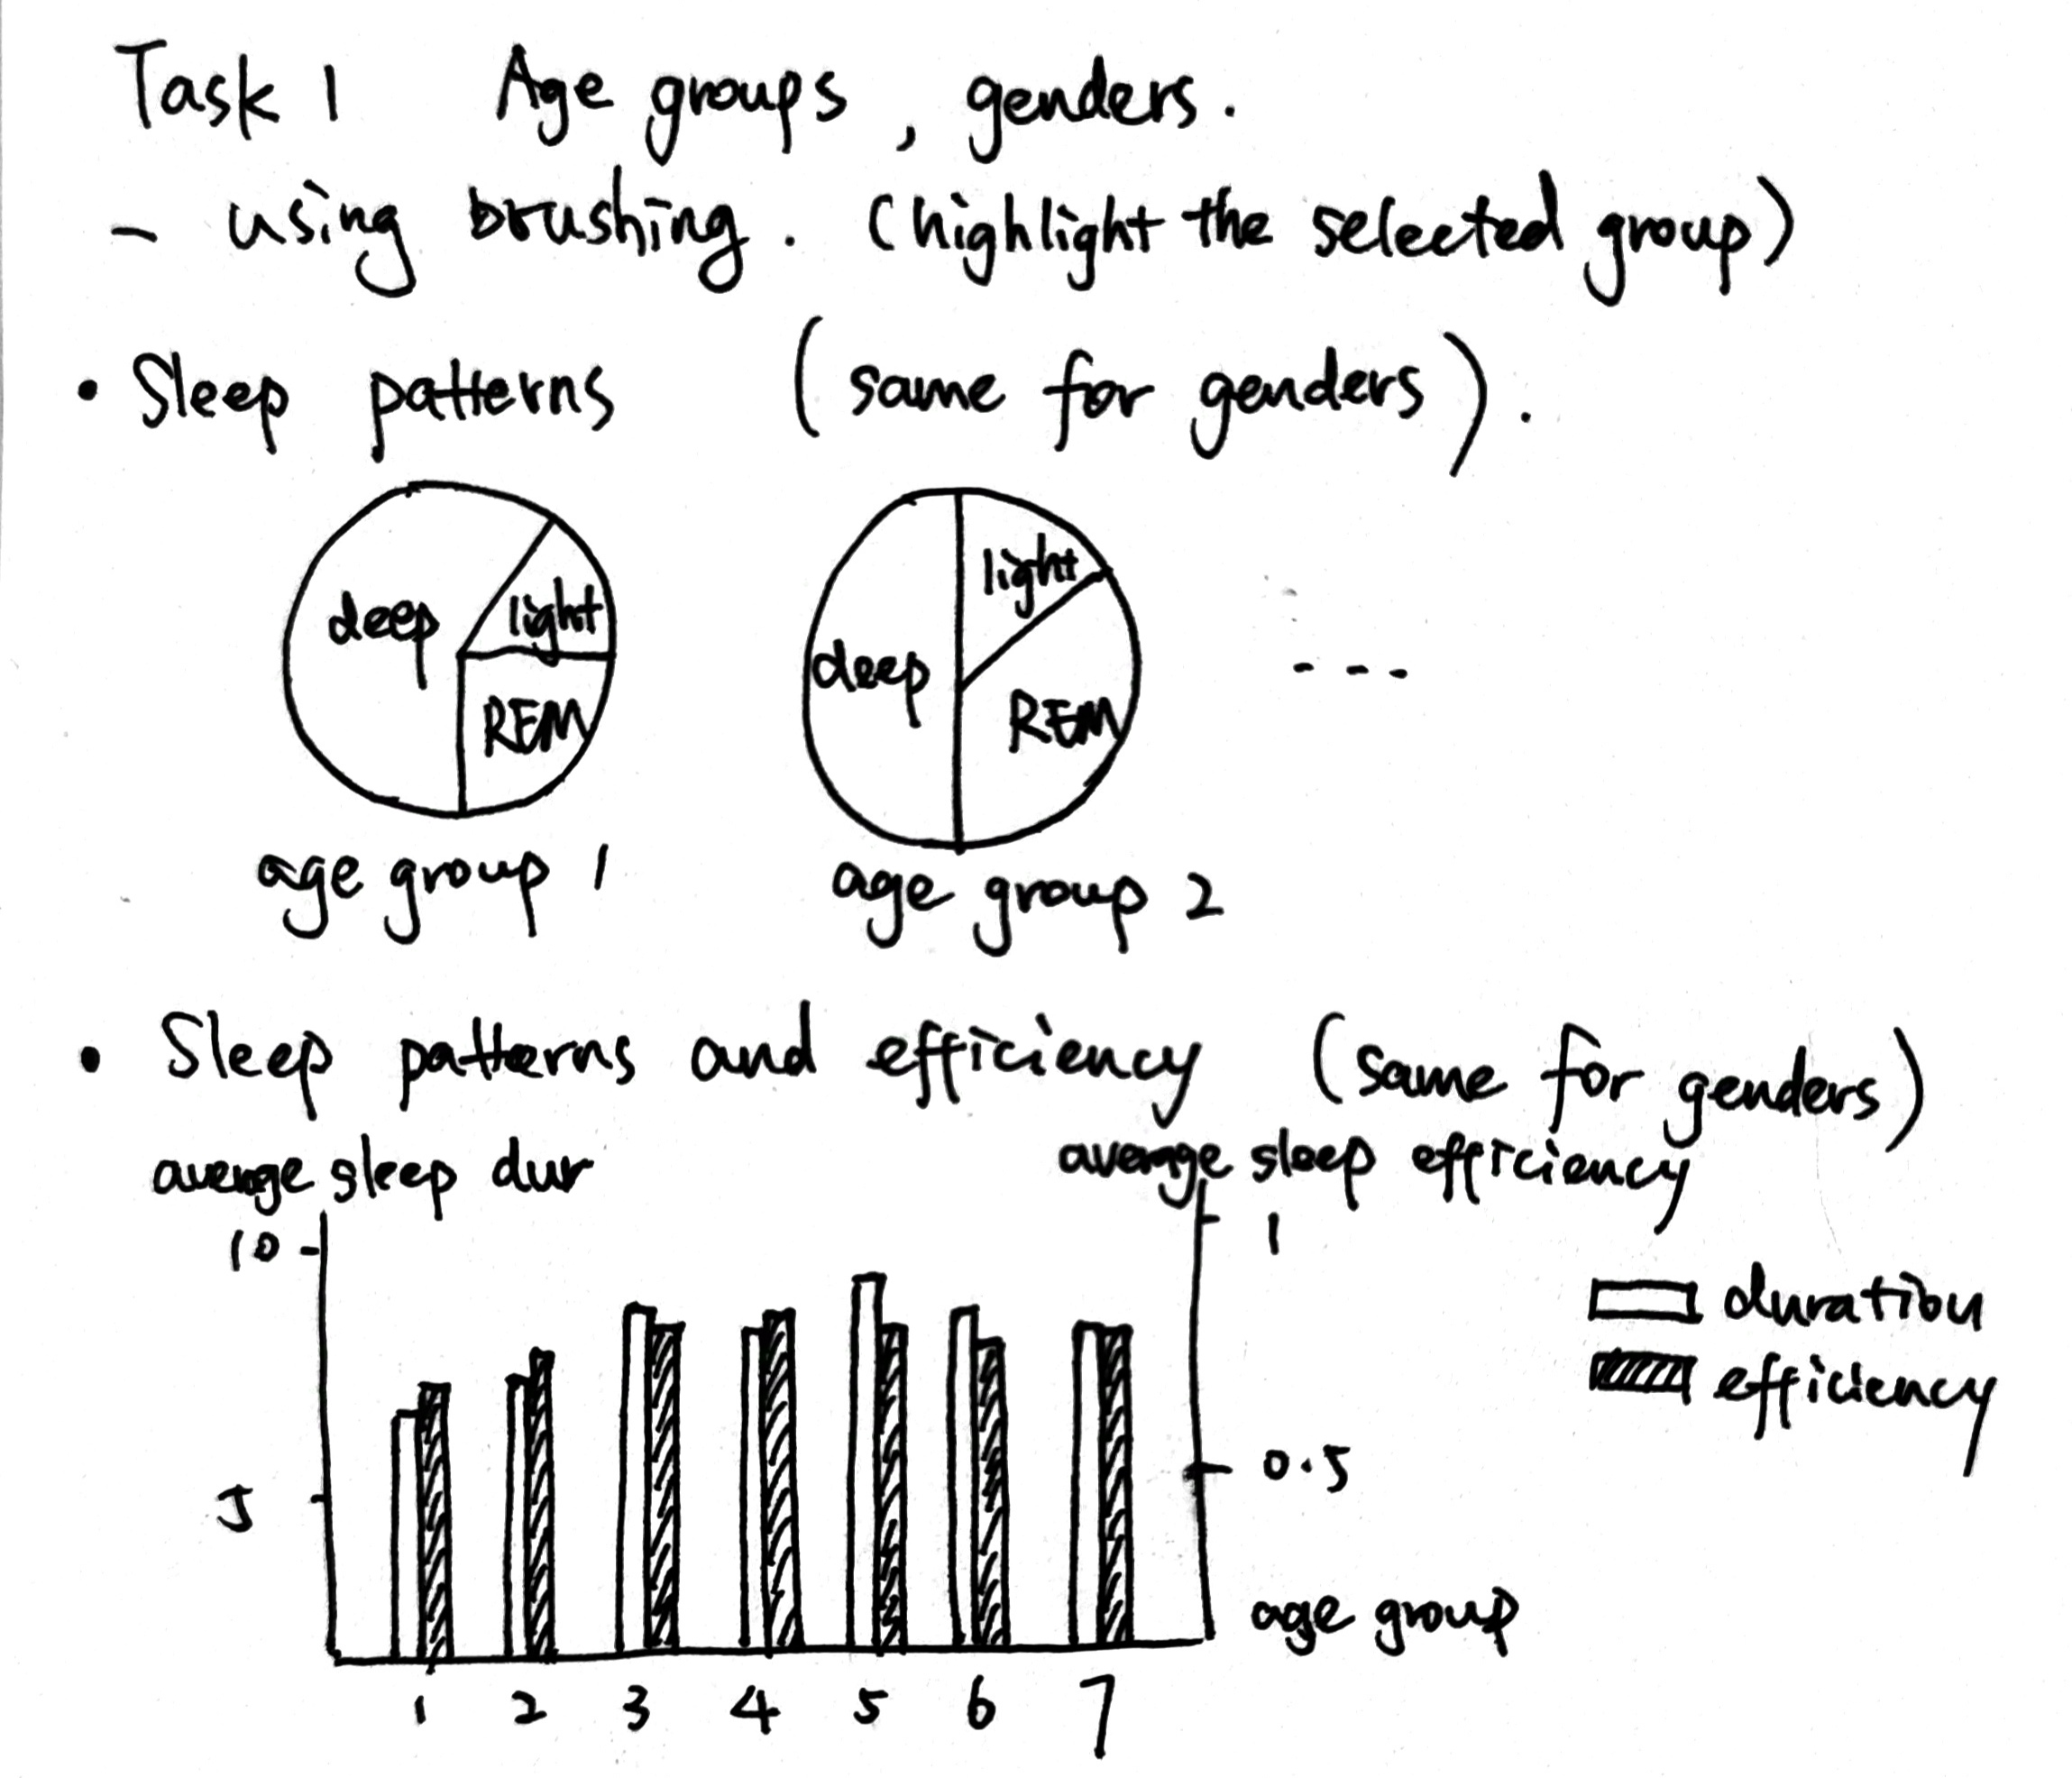 Task 1 Age groups, genders.
- using brushing. (highlight the selected group)
• Sleep patterns (same for genders).
deep light REM
deep light REM
- - -
age group 1
age group 2
• Sleep patterns and efficiency (same for genders)
average sleep dur
average sleep efficiency
10
1
duration
efficiency
5
0.5
age group
1 2 3 4 5 6 7